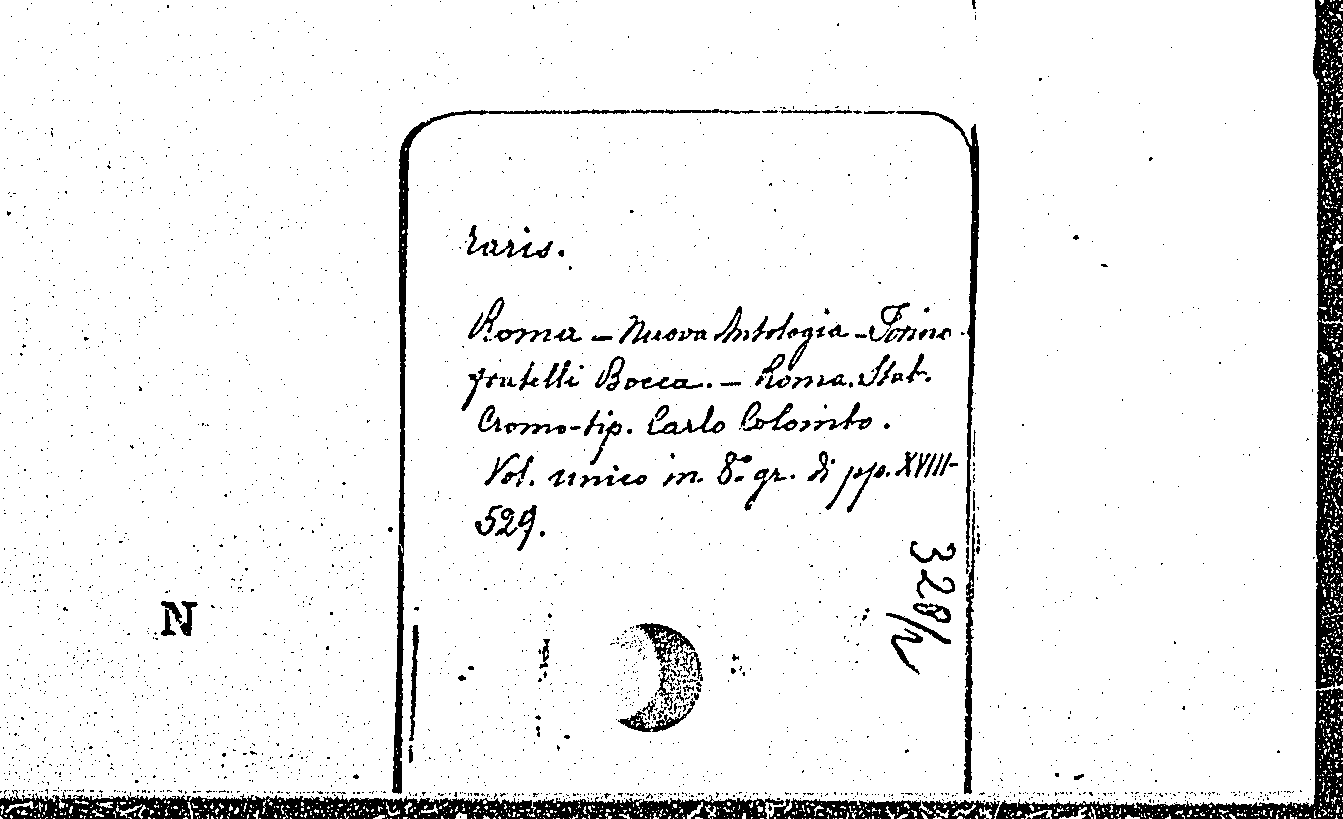 raris.
Roma – Nuova Antologia – Torino
fratelli Bocca. – Roma. Stab.
Cromo-tip. Carlo Colombo.
Vol. unico in 8.° gr. di pp. XVIII-
529.
328/2
N